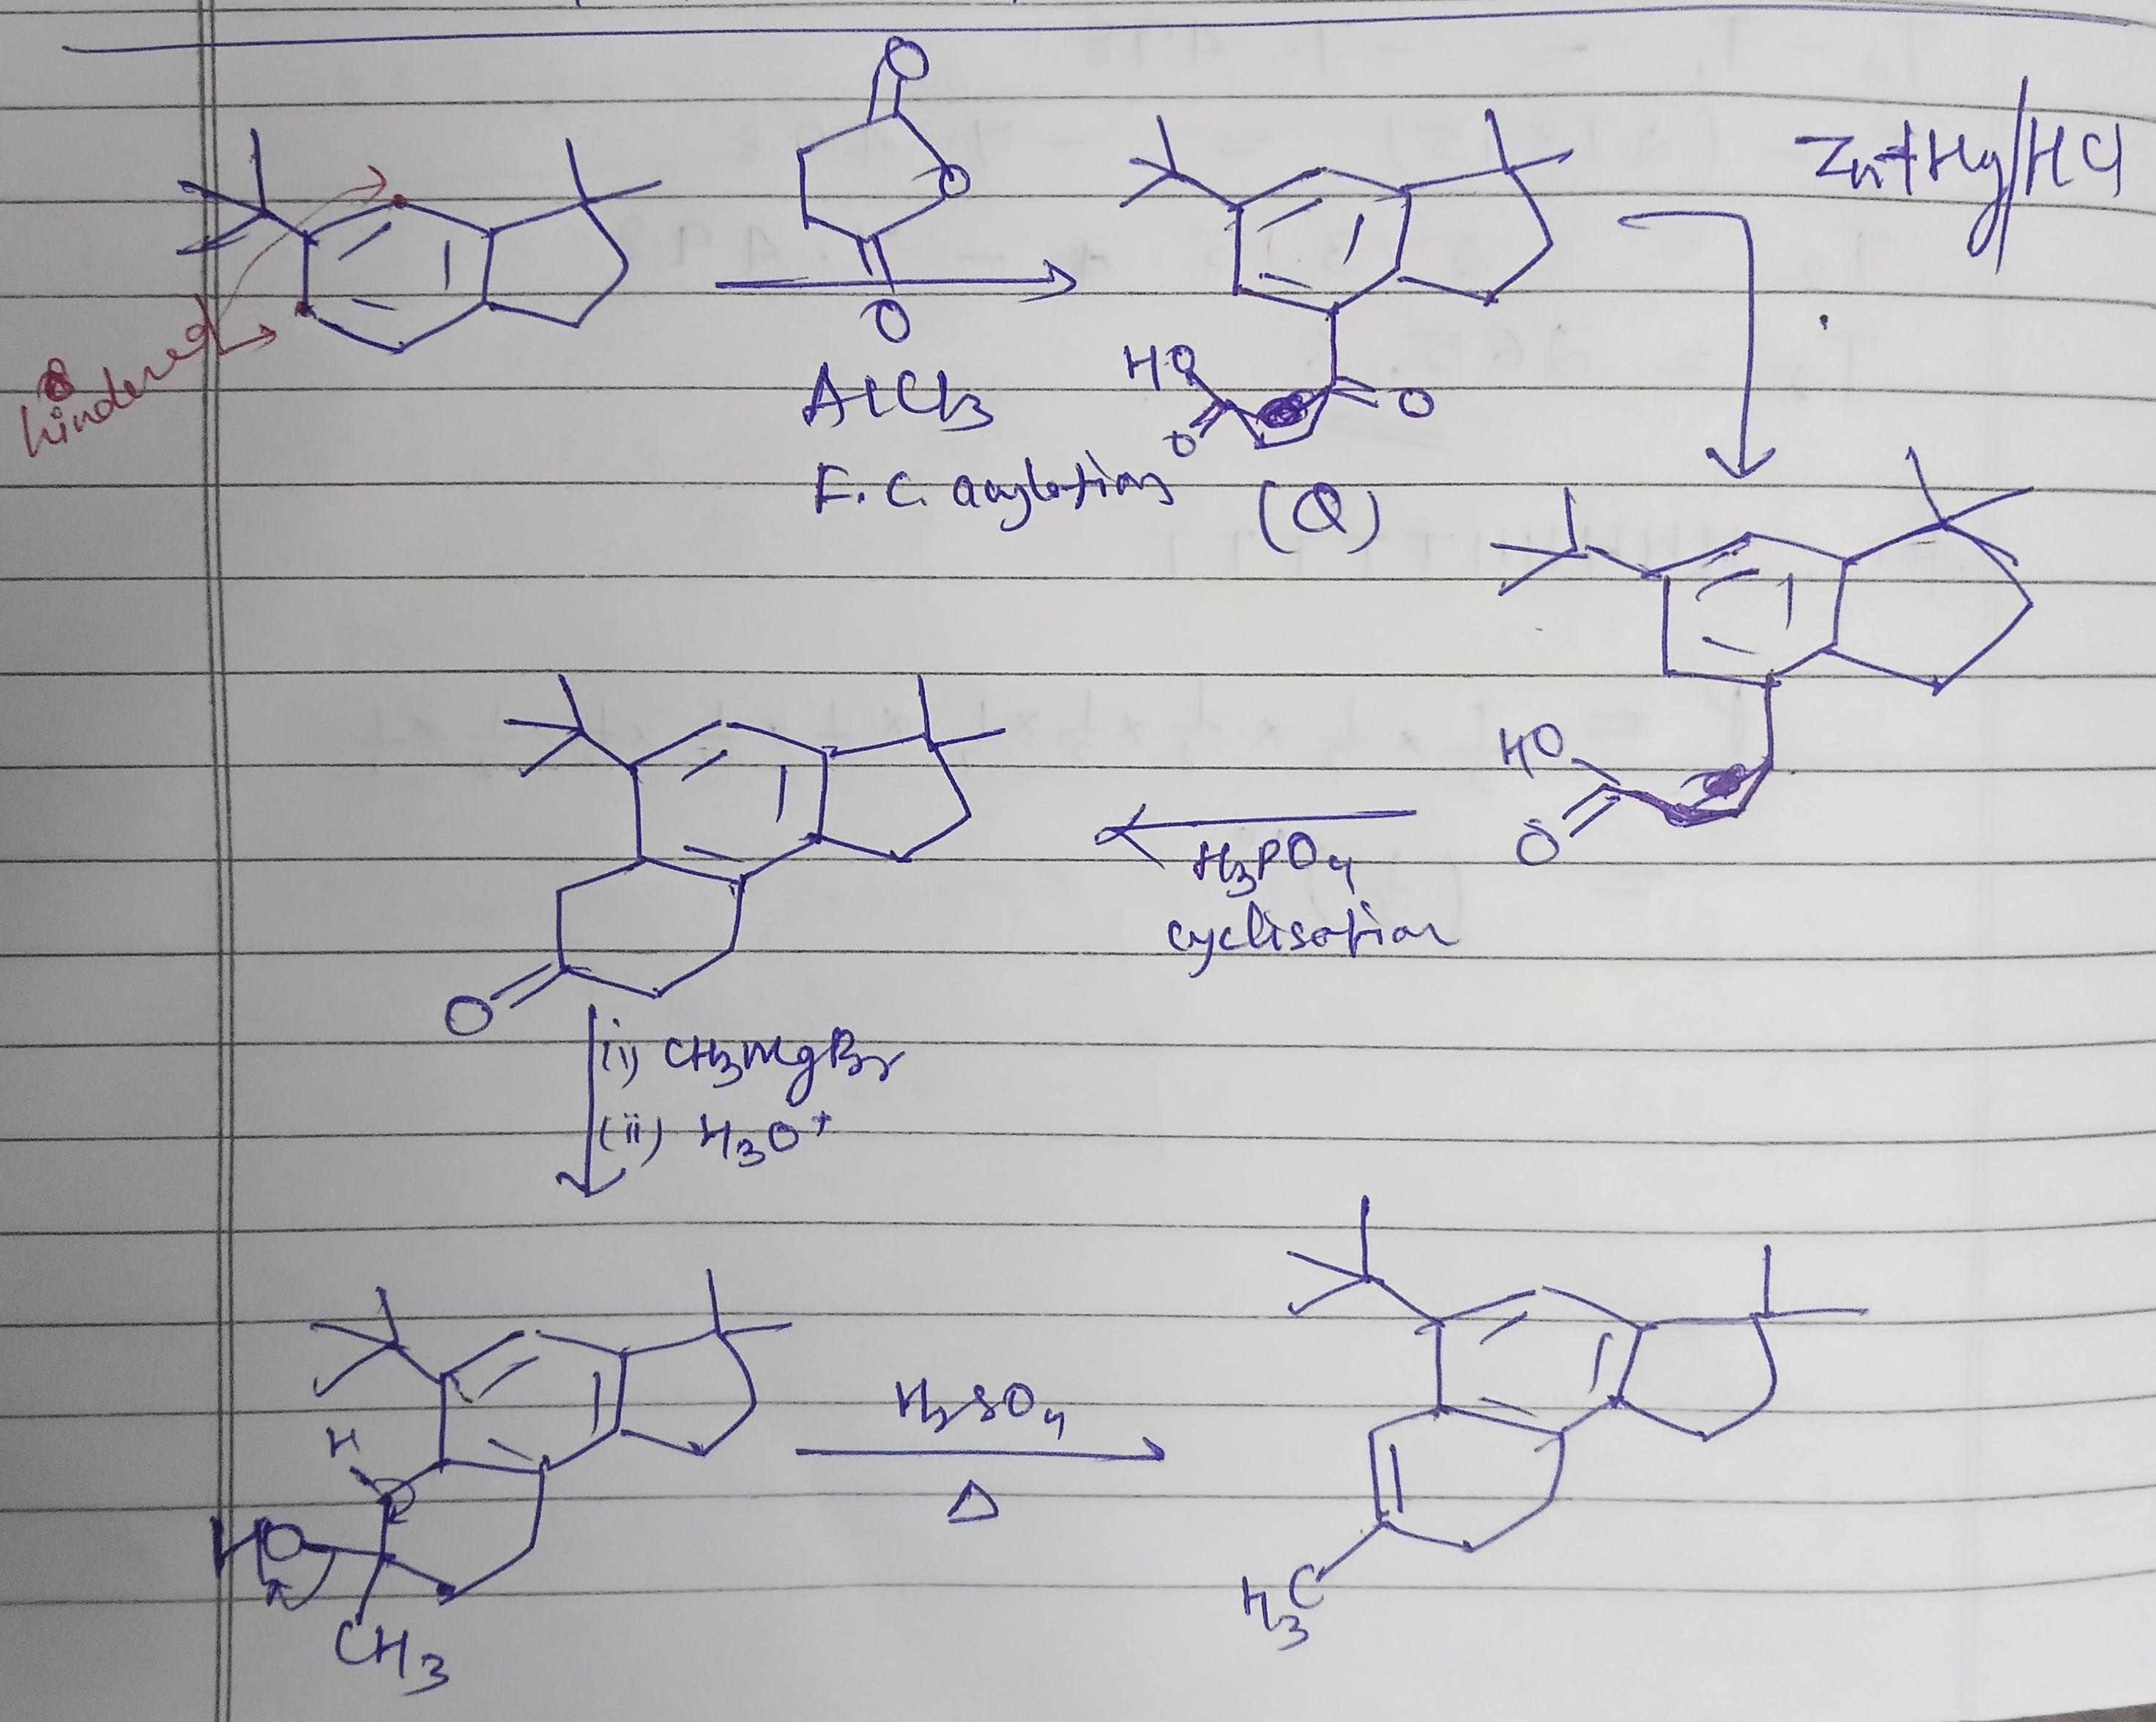 O
O
O
hindered
AlCl3
F.C. acylation
HO
O
O
(Q)
Zn+Hg/HCl
HO
O
H3PO4
cyclisation
O
(i) CH3MgBr
(ii) H3O+
H
HO
CH3
H2SO4
Δ
H3C